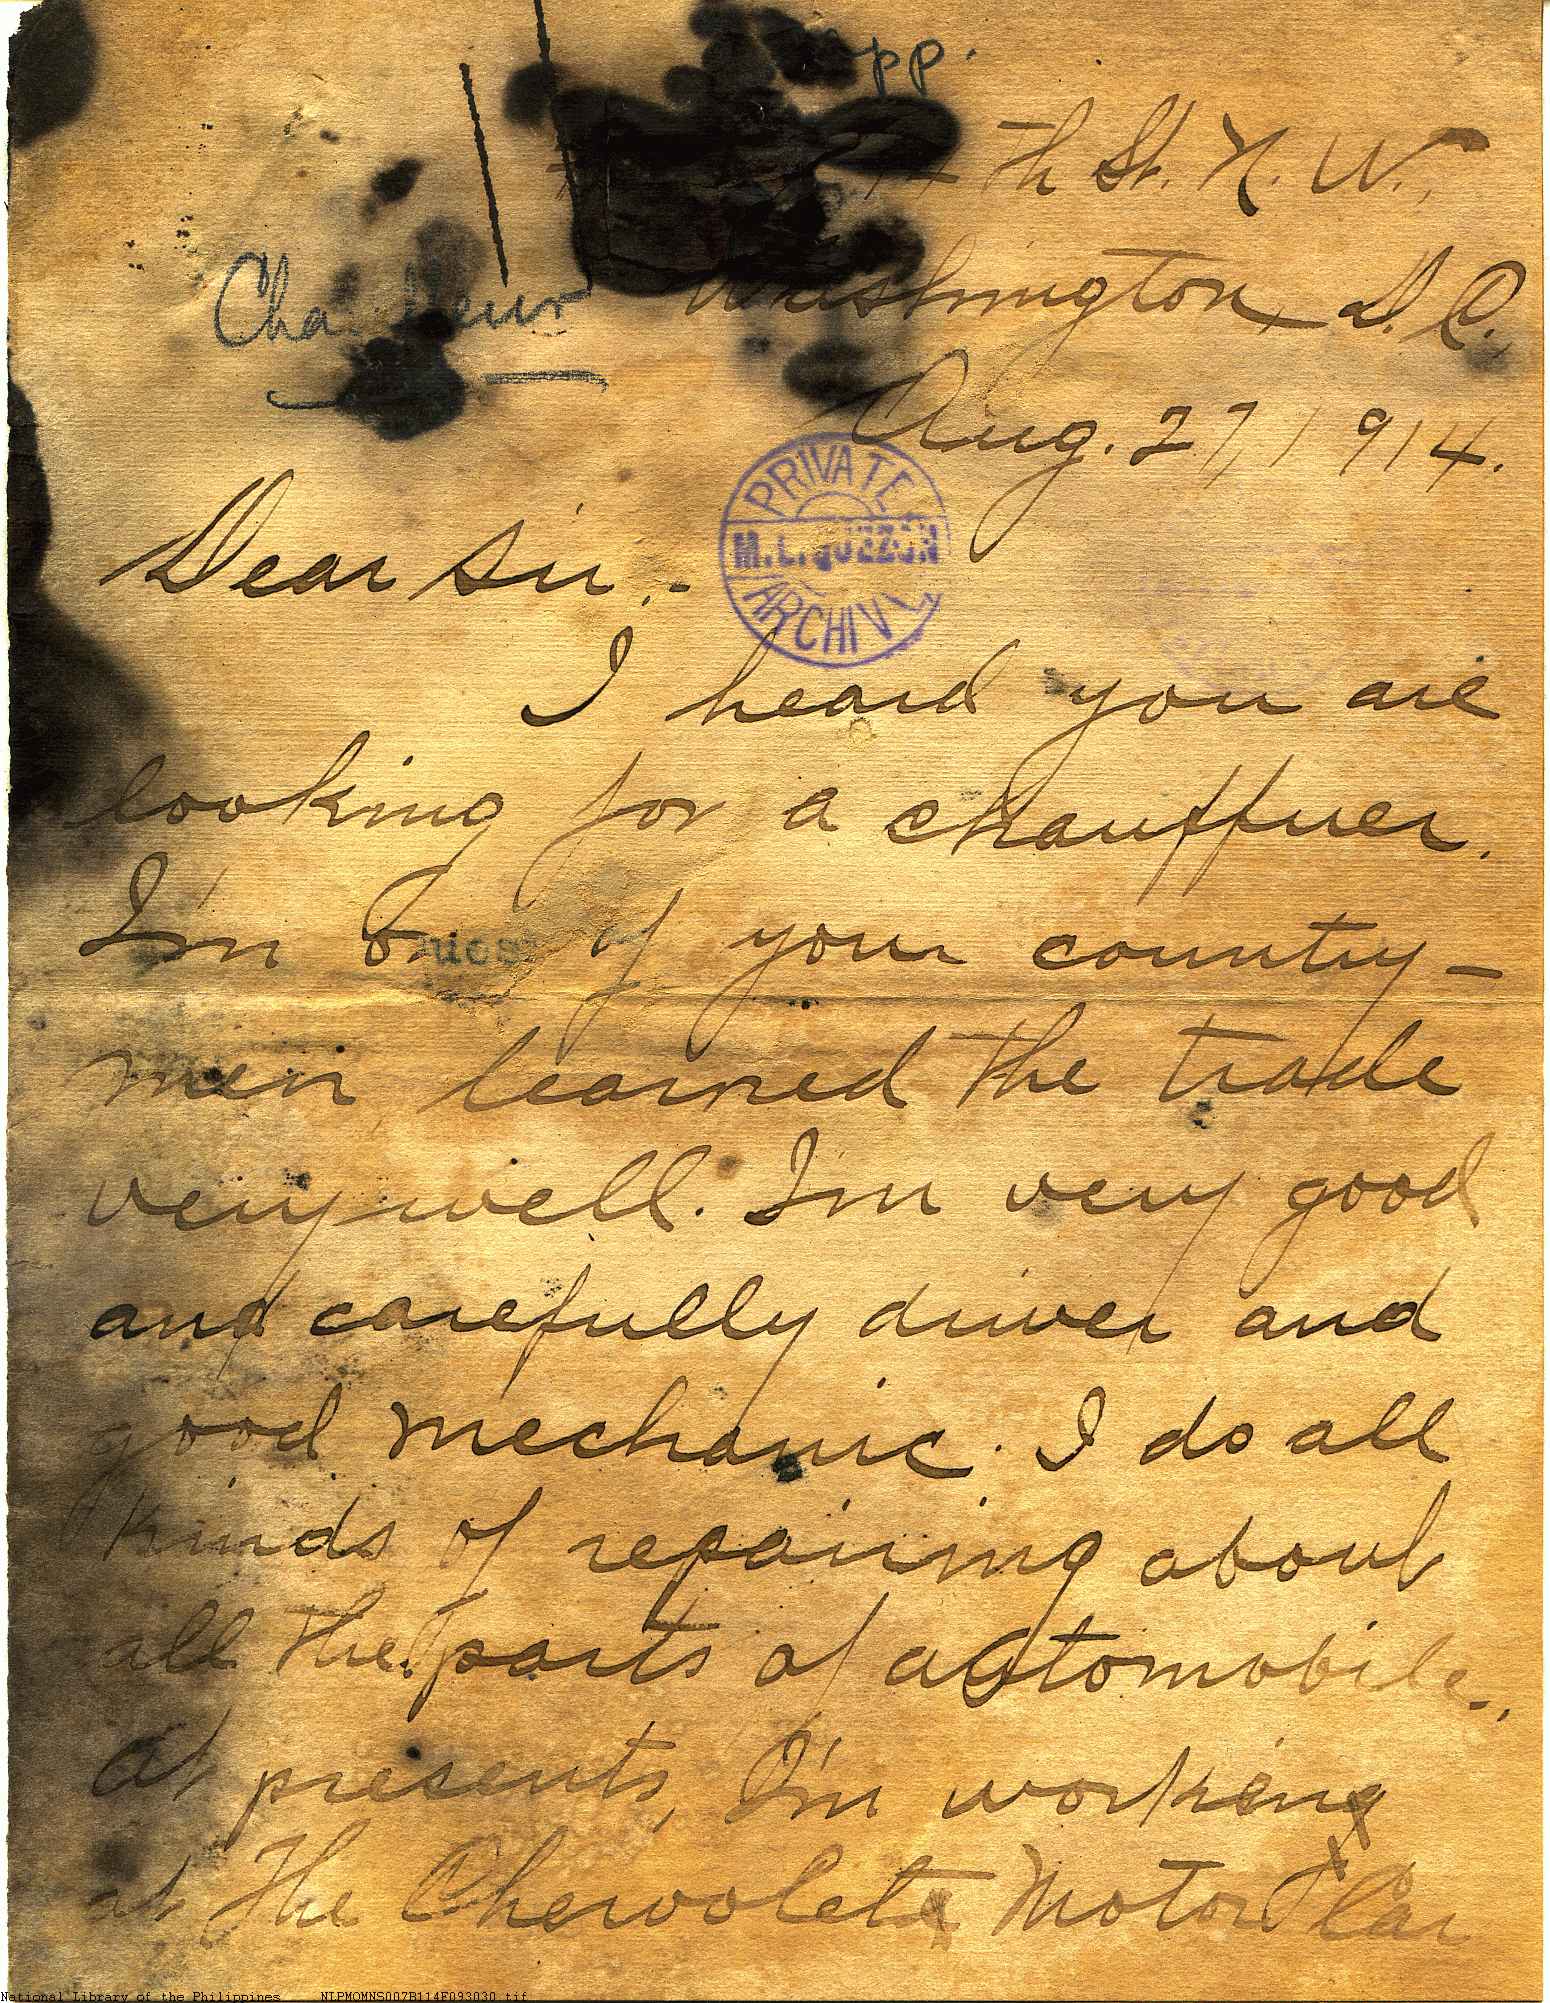 app.
th St. N. W.,
Chauffeur
Washington, D. C.,
Aug. 27, 1914.
PRIVATE
M. L. QUEZON
ARCHIVE
Dear Sir:-
I heard you are
looking for a chauffuer.
I'm one of your country-
men, learned the trade
very well. I'm very good
and carefully driver and
good mechanic. I do all
kinds of repairing about
all the parts of automobile.
At presents, I'm working
at the Chevolet Motor Car
National Library of the Philippines NLPMOMNS007B114F093030.tif